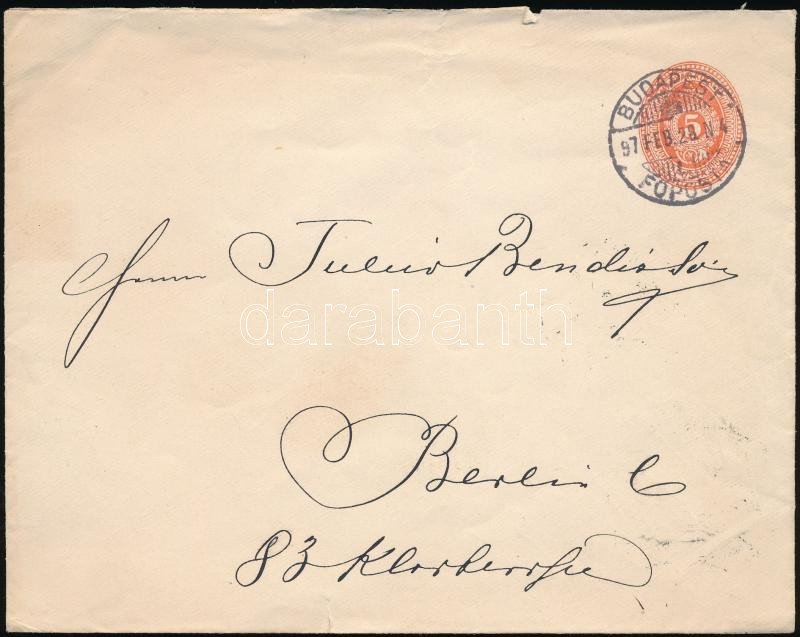 BUDAPEST
5
97 FEB. 28. N 4
FŐPOSTA
Herrn Julius Bendix Söh
darabanth
Berlin C
83 Klosterstr